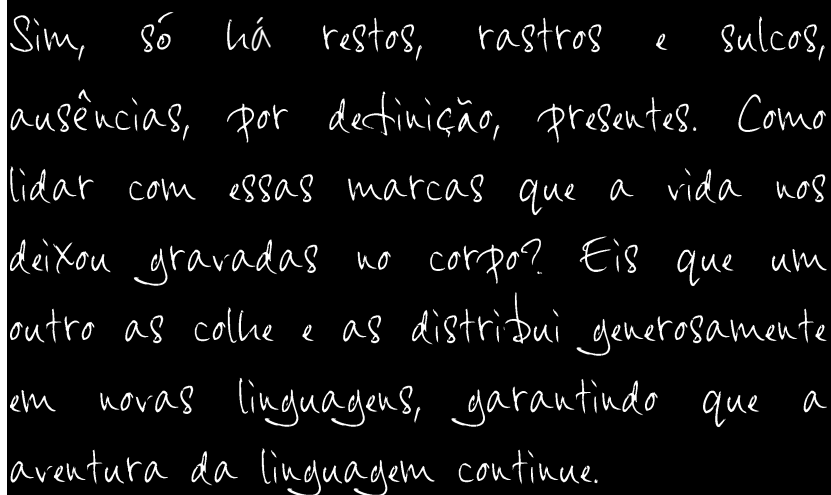 Sim, só há restos, rastros e sulcos,
ausências, por definição, presentes. Como
lidar com essas marcas que a vida nos
deixou gravadas no corpo? Eis que um
outro as colhe e as distribui generosamente
em novas linguagens, garantindo que a
aventura da linguagem continue.